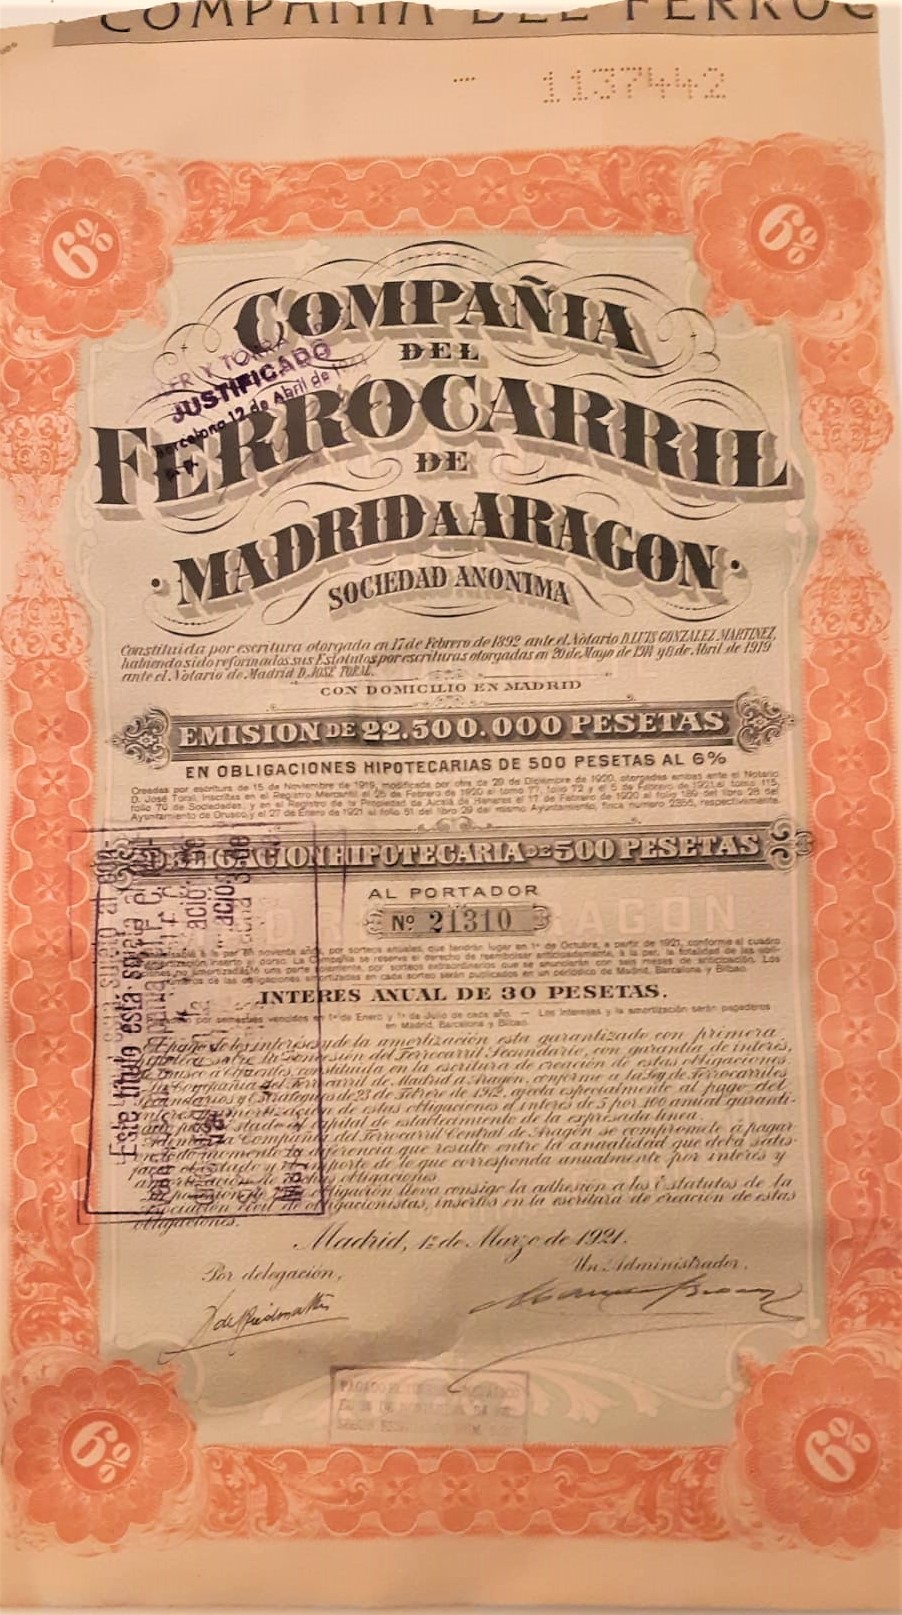 COMPAÑIA DEL FERROC
1137442
6%
6%
COMPAÑIA
DEL
FERROCARRIL
DE
MADRID A ARAGON
SOCIEDAD ANONIMA
JUSTIFICADO
Barcelona 12 de Abril de
Constituida por escritura otorgada en 17 de Febrero de 1892 ante el Notario D. LUIS GONZALEZ MARTINEZ,
habiendo sido reformados sus Estatutos por escrituras otorgadas en 20 de Mayo de 1914 y 8 de Abril de 1919
ante el Notario de Madrid D. JOSÉ TORAL.
CON DOMICILIO EN MADRID
EMISION DE 22.500.000 PESETAS
EN OBLIGACIONES HIPOTECARIAS DE 500 PESETAS AL 6%
Creadas por escritura de 15 de Noviembre de 1919, modificada por otra de 29 de Diciembre de 1920, otorgadas ambas ante el Notario
D. José Toral, inscritas en el Registro Mercantil el 25 de Febrero de 1920 al tomo 77, folio 72 y el 5 de Febrero de 1921 al tomo 115,
folio 70 de Sociedades, y en el Registro de la Propiedad de Alcalá de Henares el 17 de Febrero de 1920 al folio 189 del libro 28 del
Ayuntamiento de Orusco, y el 27 de Enero de 1921 al folio 51 del libro 29 del mismo Ayuntamiento, finca numero 2356, respectivamente.
OBLIGACION HIPOTECARIA DE 500 PESETAS
AL PORTADOR
Nº 21310
a la par en noventa años, por sorteos anuales, que tendrán lugar en 1º de Octubre, a partir de 1921, conforme al cuadro
dorso. La Compañía se reserva el derecho de reembolsar anticipadamente, a la par, la totalidad de las obli-
una parte solamente, por sorteos extraordinarios que se anunciarán con seis meses de anticipación. Los
de las obligaciones amortizadas en cada sorteo serán publicados en un periódico de Madrid, Barcelona y Bilbao.
INTERES ANUAL DE 30 PESETAS.
por semestres vencidos en 1º de Enero y 1º de Julio de cada año. — Los intereses y la amortización serán pagaderos
en Madrid, Barcelona y Bilbao.
El pago de los intereses y de la amortización esta garantizado con primera
hipoteca sobre la concesión del Ferrocarril Secundario, con garantia de interés,
de Orusco a Cifuentes, constituida en la escritura de creación de estas obligaciones
La Compañia del Ferrocarril de Madrid a Aragon, conforme a la Ley de Ferrocarriles
Secundarios y Estratégicos de 23 de Febrero de 1912, afecta especialmente al pago del
interes y amortización de estas obligaciones el interés de 5 por 100 anual garanti-
zado por el Estado al capital de establecimiento de la expresada linea.
Además la Compañia del Ferrocarril Central de Aragón se compromete á pagar
en todo momento la diferencia que resulte entre la anualidad que deba satis-
facer el Estado y el importe de lo que corresponda anualmente por interés y
amortización de dichas obligaciones.
La posesión de una obligación lleva consigo la adhesion a los Estatutos de la
Asociación civil de obligacionistas, insertos en la escritura de creación de estas
obligaciones.
Este título está sujeto al
Madrid, 1º de Marzo de 1921.
Por delegación,
Un Administrador,
6%
6%